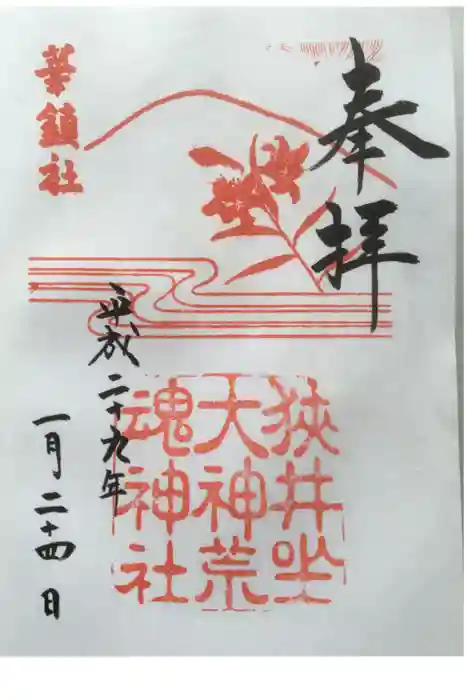 奉拝
狭井坐
大神荒
魂神社
平成二十九年
一月二十四日
華鎮社